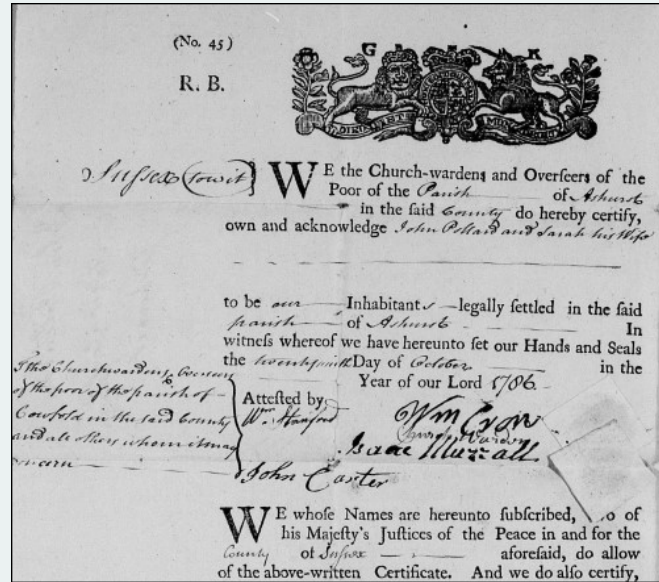 (No. 45)
G R
R. B.
DIEU ET MON
Sussex (towit)
WE the Church-wardens and Overseers of the
Poor of the Parish of Ashurst
in the said County do hereby certify,
own and acknowledge John Pollard and Sarah his Wife
to be our Inhabitants legally settled in the said
parish of Ashurst In
witness whereof we have hereunto set our Hands and Seals
the twenty ninth Day of October in the
Year of our Lord 1786
To the Churchwardens & Overseers
of the poor of the parish of
Cowfold in the said County
and all others whom it may
concern
Attested by
Wm. Stanford
John Carter
Wm
Church Warden
Isaac
WE whose Names are hereunto subscribed, of
his Majesty's Justices of the Peace in and for the
County of Sussex aforesaid, do allow
of the above-written Certificate. And we do also certify,